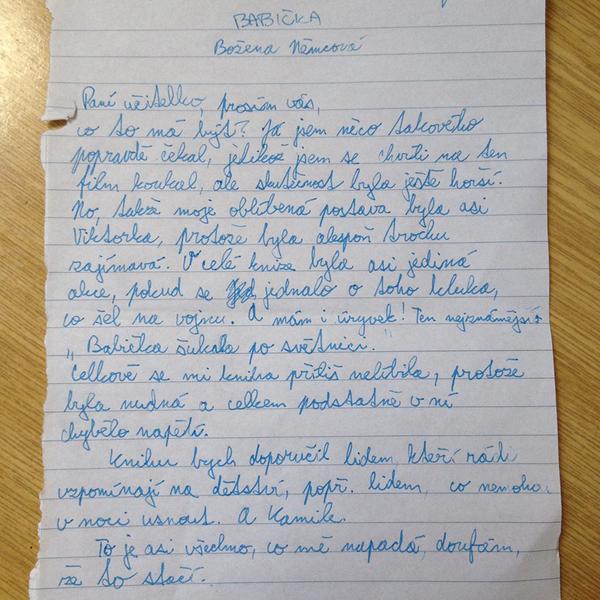 BABIČKA
Božena Němcová
Paní učitelko, prosím vás,
co to má být? Já jsem něco takového
popravdě čekal, jelikož jsem se chvíli na ten
film koukal, ale skutečnost byla ještě horší.
No, takže moje oblíbená postava byla asi
Viktorka, protože byla alespoň trochu
zajímavá. V celé knize byla asi jediná
akce, pokud se jednalo o toho kluka,
co šel na vojnu. A mám i úryvek! Ten nejznámější:
„Babička šukala po světnici."
Celkově se mi kniha příliš nelíbila, protože
byla nudná a celkem podstatně v ní
chybělo napětí.
Knihu bych doporučil lidem, kteří rádi
vzpomínají na dětství, popř. lidem, co nemohou
v noci usnout. A Kamile.
To je asi všechno, co mě napadá, doufám,
že to stačí.